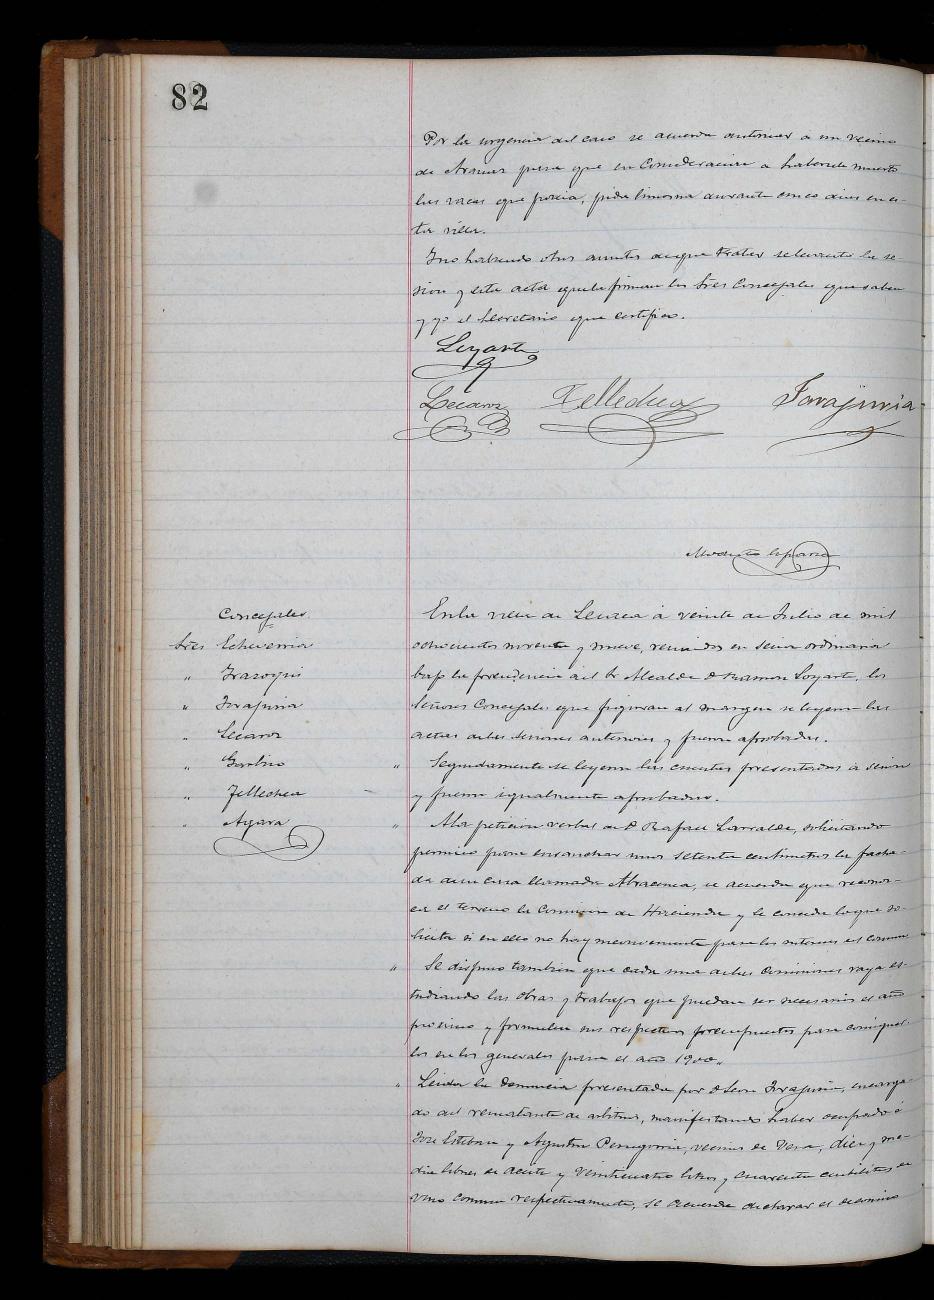 82
Por la urgencia del caso se acuerda autorizar a un vecino
de Aranaz para que en consideracion a habersele muerto
las vacas que poseia, pida limosna durante cinco dias en es-
ta villa.
Y no habiendo otros asuntos de que tratar se levantó la se-
sion y esta acta que la firman los Sres Concejales que saben
y yo el Secretario que certifico.
Loyarte
Lecaroz Tellechea Irazjuria
Modesto
Concejales
Sres Echeverria
" Irazoqui
"
" Lecaroz
"
" Tellechea
" Apara
En la villa de Lesaca á veinte de Julio de mil
ochocientos noventa y nueve, reunidos en sesion ordinaria
bajo la presidencia del Sr Alcalde D Ramon Loyarte, los
Señores Concejales que figuran al margen se leyeron las
actas de las sesiones anteriores y fueron aprobadas.
" Seguidamente se leyeron las cuentas presentadas á sesion
y fueron igualmente aprobadas.
" A la peticion verbal de D Rafael Larralde, solicitando
permiso para ensanchar unos setenta centimetros la facha-
da de su casa llamada, se acuerda que reconoz-
ca el terreno la Comision de Hacienda y le conceda lo que so-
licita si en ello no hay inconveniente para los intereses del comun
" Se dispuso tambien que cada una de las Comisiones vaya es-
tudiando las obras y trabajos que puedan ser necesarios el año
proximo y formulen sus respectivos presupuestos para
los en los generales para el año 1900.
" Leida la denuncia presentada por D Leon, encarga-
do del rematante de arbitrios, manifestando haber ocupado á
José Esteban y Agustin, vecinos de Vera, diez y me-
dia libras de aceite y veinticuatro litros y cuarenta centilitros de
vino comun respectivamente, se acuerda declarar el decomiso